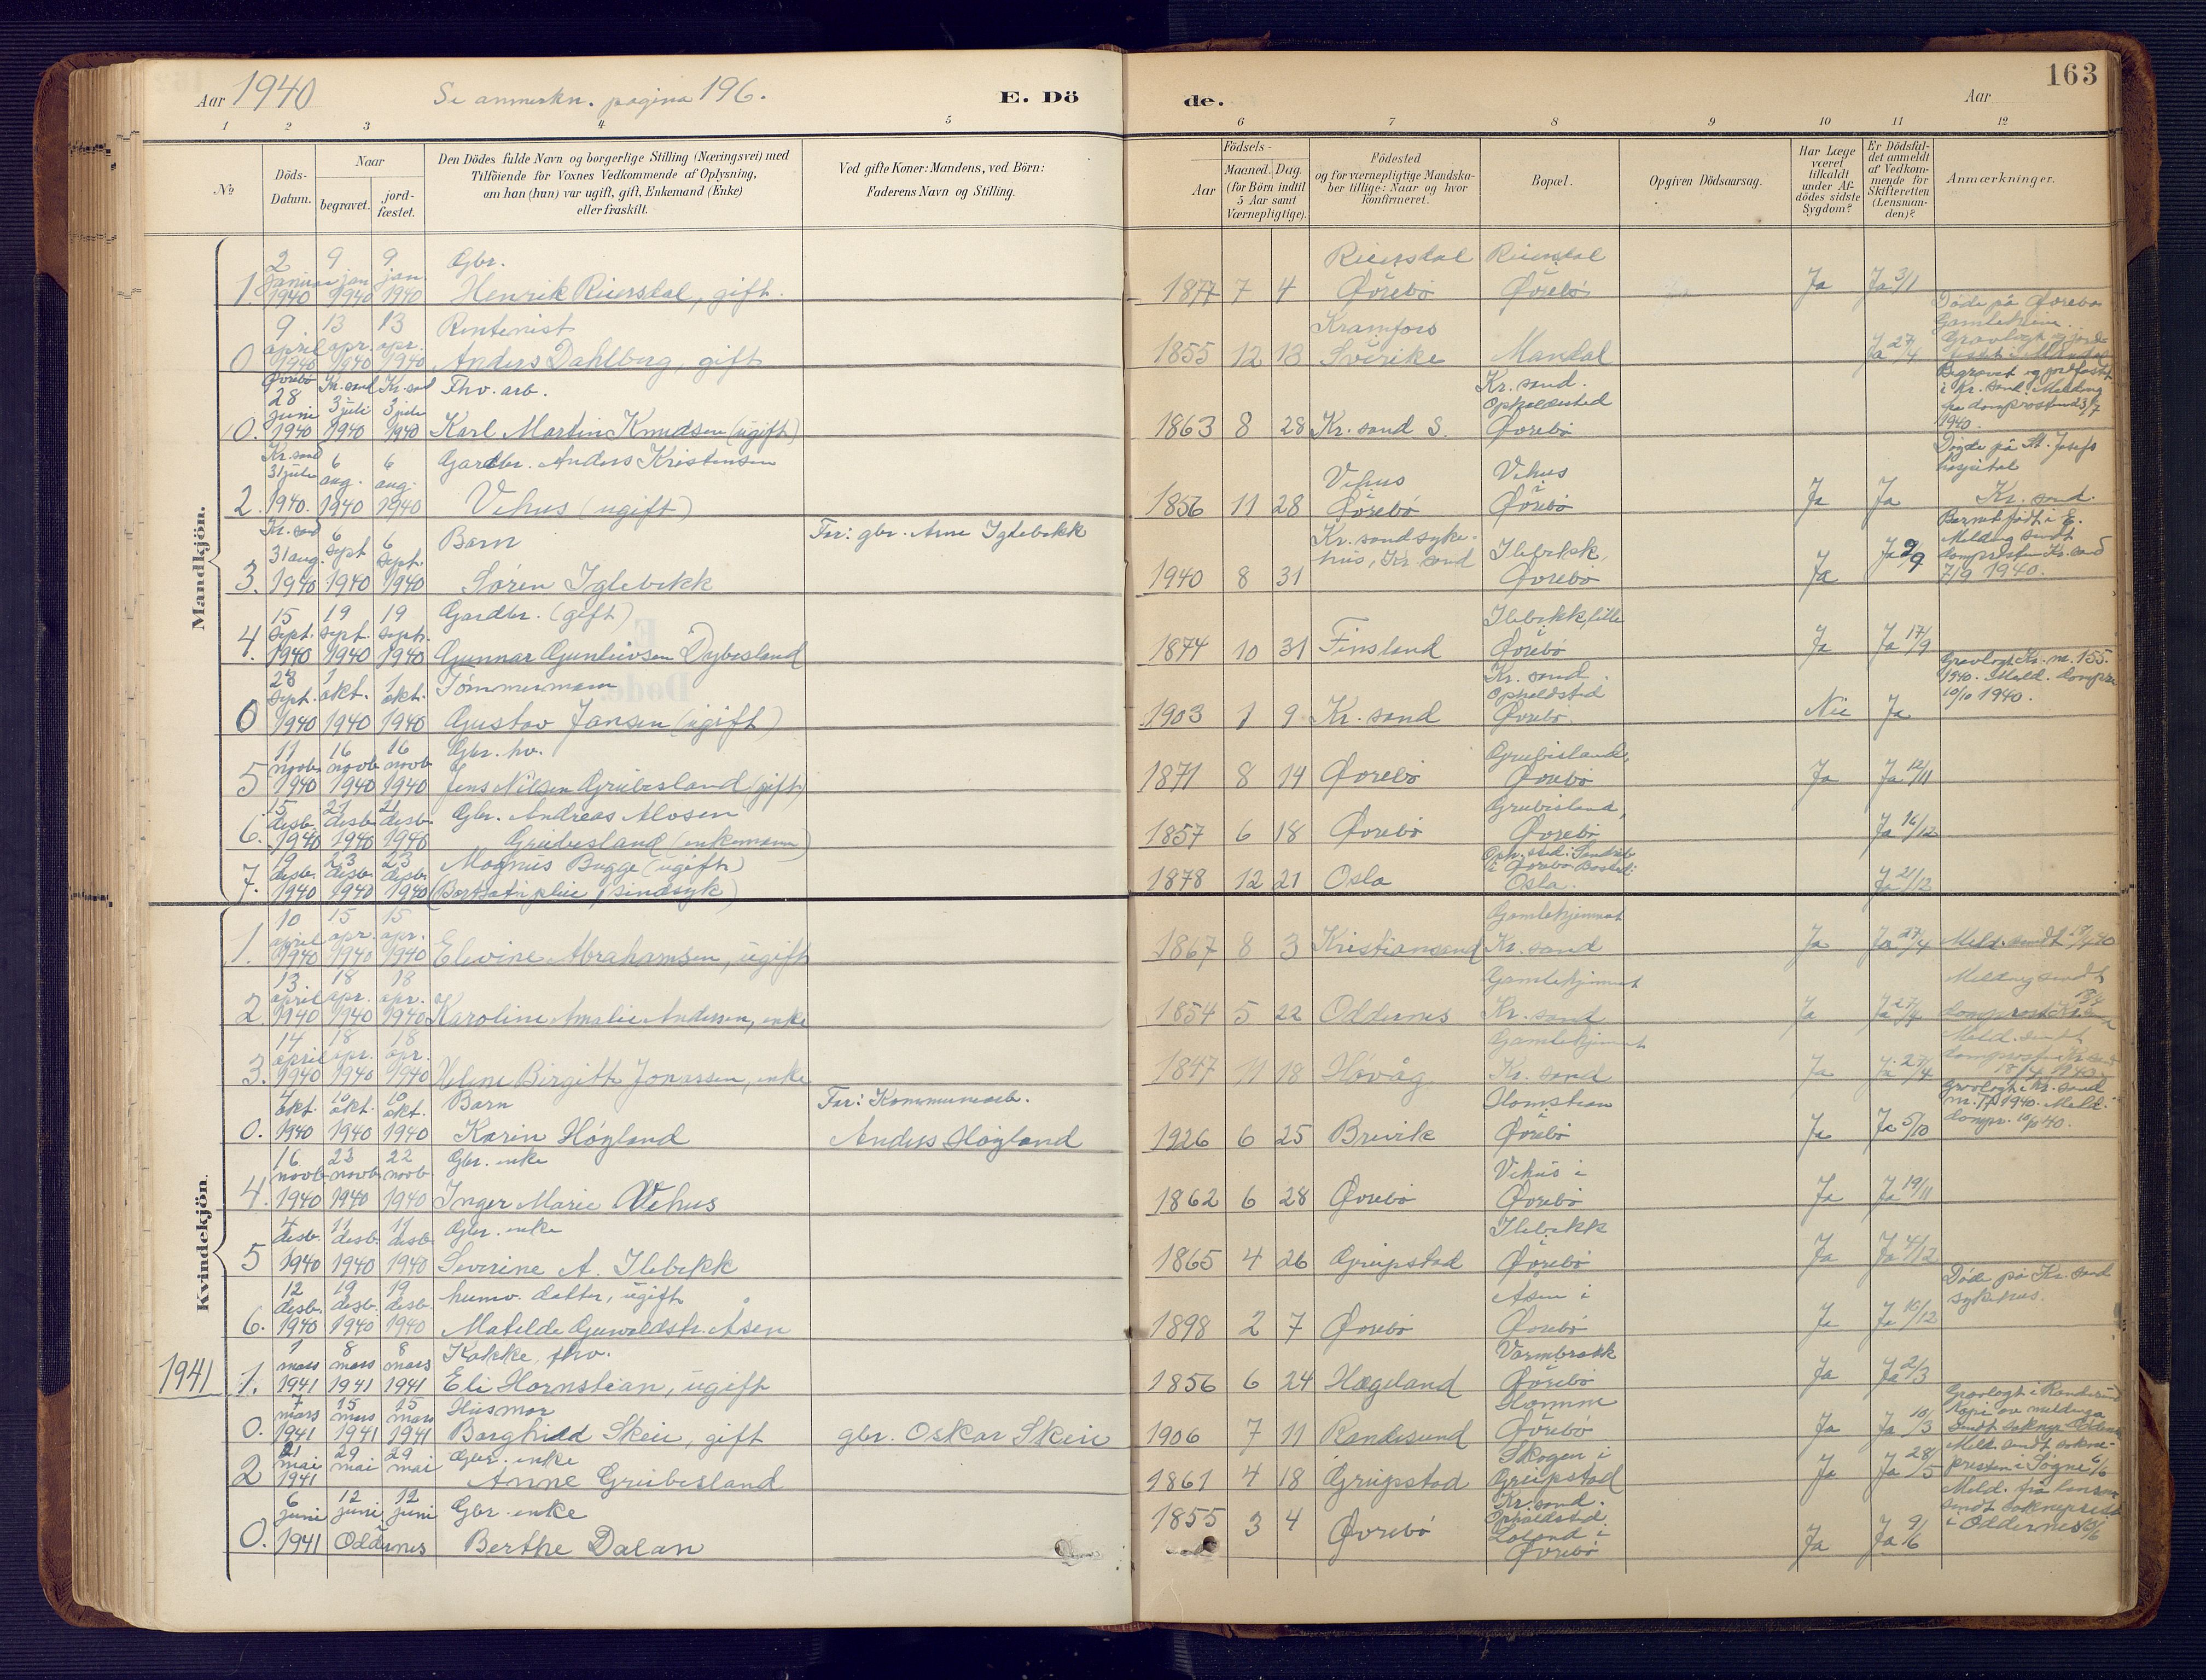 163
Aar 1940
Se anmerkn. pagina 196.
E. Dö
de.
Aar
1 2 3 4 5 6 7 8 9 10 11 12
No
Döds-
Datum.
Naar
begravet.
jord-
fæstet.
Den Dödes fulde Navn og borgerlige Stilling (Næringsvei) med
Tilföiende for Voxnes Vedkommende af Oplysning,
om han (hun) var ugift, gift, Enkemand (Enke)
eller fraskilt.
Ved gifte Koner: Mandens, ved Börn:
Faderens Navn og Stilling.
Födsels-
Aar
Maaned.
Dag.
(for Börn indtil
5 Aar samt
Værnepligtige).
Födested
og for værnepligtige Mandska-
ber tillige: Naar og hvor
konfirmeret.
Bopæl.
Opgiven Dödsaarsag.
Har Læge
været
tilkaldt
under Af-
dödes sidste
Sygdom?
Er Dödsfal-
det anmeldt
af Vedkom-
mende for
Skifteretten
(Lensman-
den)?
Anmærkninger.
Mandkjön.
1 2 januar 1940 9 jan 1940 9 jan. 1940 Gbr.
Henrik Reiersdal, gift. 1877 7 4 Reiersdal Øvrebø Reiersdal Øvrebø Ja Ja 3/1
0 9. april 1940 13 apr. 1940 13 apr. 1940 Rentenist
Anders Dahlberg, gift 1855 12 13 Kramfors Sverike Mandal Ja 27/4 Døde på Øvrebø
Gamleheim.
Gravlagt og jord-
festet i Mandal
0. Øvrebø 28 juni 1940 Kr.sand 3 juli 1940 Kr.sand 3 jule 1940 Fhv. arb.
Karl Martin Knudsen (ugift) 1863 8 28 Kr. sand S. Kr. sand. Opholdssted Øvrebø Begravet og jordfestet
i Kr. sand. Melding
fra domprosten d 3/7
1940.
2. Kr.sand 31 jule 1940. 6 aug. 1940 6 aug. 1940 Gardbr. Anders Kristensen
Vehus (ugift) 1856 11 28 Vehus i Øvrebø Vehus i Øvrebø Ja Ja Døyde på St. Josefs
hospital
Kr. sand.
3. Kr. sand 31 aug. 1940 6 sept 1940 6 sept. 1940 Barn
Søren Iglebekk Far: gbr. Arne Iglebekk 1940 8 31 Kr. sand syke-
hus, Kr. sand Ilebekk, Øvrebø Ja Ja 2/9 Barnet født i E.
Melding sendt
domprosten Kr. sand
7/9 1940.
4. 15 sept. 1940 19 sept. 1940 19 sept. 1940 Gardbr. (gift)
Gunnar Gunleivsen Dybesland 1874 10 31 Finsland Ilebekk, lille i Øvrebø Ja Ja 17/9
0 28 sept. 1940 1 okt. 1940 1 okt. 1940 Tømmermann
Gustav Jansen (ugift) 1903 1 9 Kr. sand Kr. sand. Opholdsted Øvrebø. Nei Ja Gravlagt Kr. nr. 155.
1940. Meld. dompr.
10/10 1940.
5 11 novb. 1940 16 novb 1940 16 novb 1940 Gbr. hv.
Jens Nilsen Grubesland (gift) 1871 8 14 Øvrebø Grubesland, Øvrebø Ja Ja 12/11
6. 15 desb. 1940 21 desb. 1940 21 desb. 1940 Gbr. Andreas Alosen
Grubesland (enkemann) 1857 6 18 Øvrebø Grubesland, Øvrebø Ja 16/12
7. 19 desb. 1940 23 desb. 1940 23 desb. 1940 Magnus Bugge (ugift)
(Bortsatt i pleie, sindsyk) 1878 12 21 Oslo i Øvrebø. Bosted: Oslo. Ja 21/12
Kvindekjön.
1. 10 april 1940 15 apr. 1940 15 apr. 1940 Elevine Abrahamsen, ugift 1867 8 3 Kristiansand Gamlehjemmet Kr. sand Ja Ja 27/4 Meld. sendt
2. 13. april 1940 18 apr. 1940 18 apr. 1940 Karoline Amalie Andersen, enke 1854 5 22 Oddernes Gamlehjemmet Kr. sand Ja Ja 27/4 Melding sendt
3. 14 april 1940 18 apr. 1940 18 apr. 1940 Helene Birgitte Jonassen, enke 1847 11 18 Høvåg Gamlehjemmet Kr. sand Ja Ja 27/4 Meld. sendt
domprosten Kr. sand
18/4 1940.
0. 4 okt. 1940 10 okt. 1940 10 okt. 1940 Barn
Karin Høyland Far: Kommunearb.
Anders Høyland 1926 6 25 Brevik Homstean i Øvrebø Ja Ja 5/10 Gravlagt i Kr. sand
1940. Meld.
dompr. 10/10 40.
4. 16 novb. 1940 23 novb 1940 22 novb 1940 Gbr. enke
Inger Marie Vehus 1862 6 28 Øvrebø Vehus i Øvrebø Ja Ja 19/11
5 4 desb. 1940 11 desb. 1940 11 desb. 1940 Gbr. enke
Severine A. Ilebekk 1865 4 26 Greipstad Ilebekk i Øvrebø Ja Ja 4/12
6. 12 desb. 1940 19 desb. 1940 19 desb. 1940 husmv. datter, ugift
Matilde Gunvaldstr. Åsen 1898 2 7 Øvrebø Åsen i Øvrebø Ja Ja 16/12 Døde på Kr. sand
sykehus.
1941
1. 1 mars 1941 8 mars 1941 8 mars 1941 Kokke, fhv.
Eli Homstean, ugift 1856 6 24 Hægeland Varmbrokk i Øvrebø Ja Ja 2/3
0. 7 mars 1941 15 mars 1941 15 mars 1941 Husmor
Borghild Skeie, gift gbr. Oskar Skeie 1906 7 11 Randesund Homme Øvrebø Ja Ja 10/3 Gravlagt i Randesund
Kopi av meldinga
sendt soknepr. Oddernes
2 21 mai 1941 29 mai 29 mai Gbr. enke
Anne Grubesland 1861 4 18 Greipstad Skogen i Greipstad Ja Ja 28/5 Meld. sendt sokne-
presten i Søgne 6/6
0. 6 juni 1941 12 juni 12 juni Oddernes Gbr. enke
Berthe Dalan 1855 3 4 Øvrebø Kr. sand. Opholdsted. Loland i Øvrebø Ja Ja 9/6 Meld. fra lensm.
sendt sokneprest
i Oddernes